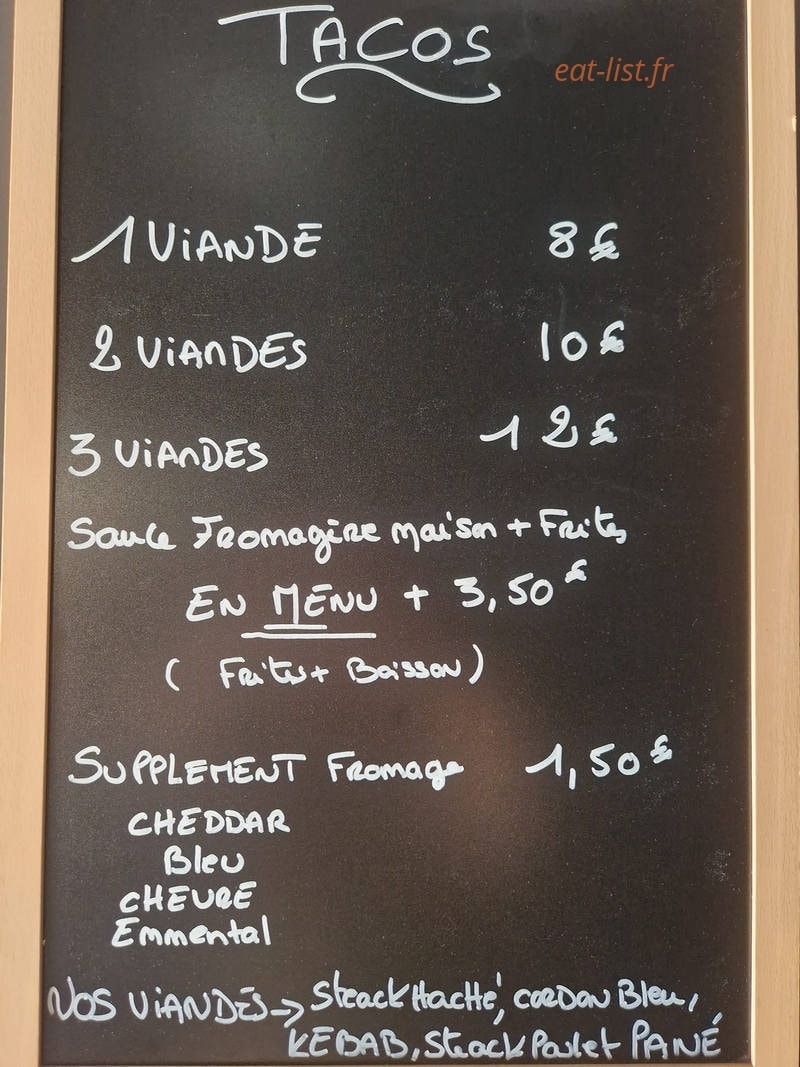 TACOS
eat-list.fr
1 ViANDE 8€
2 ViANDES 10€
3 ViANDES 12€
Sauce Fromagère maison + Frites
EN MENU + 3,50€
( Frites + Boisson )
SUPPLEMENT Fromage 1,50€
CHEDDAR
Bleu
CHEVRE
Emmental
NOS ViANDES → Steack HacHé, corDon Bleu,
KEBAB, Steack Poulet PANÉ